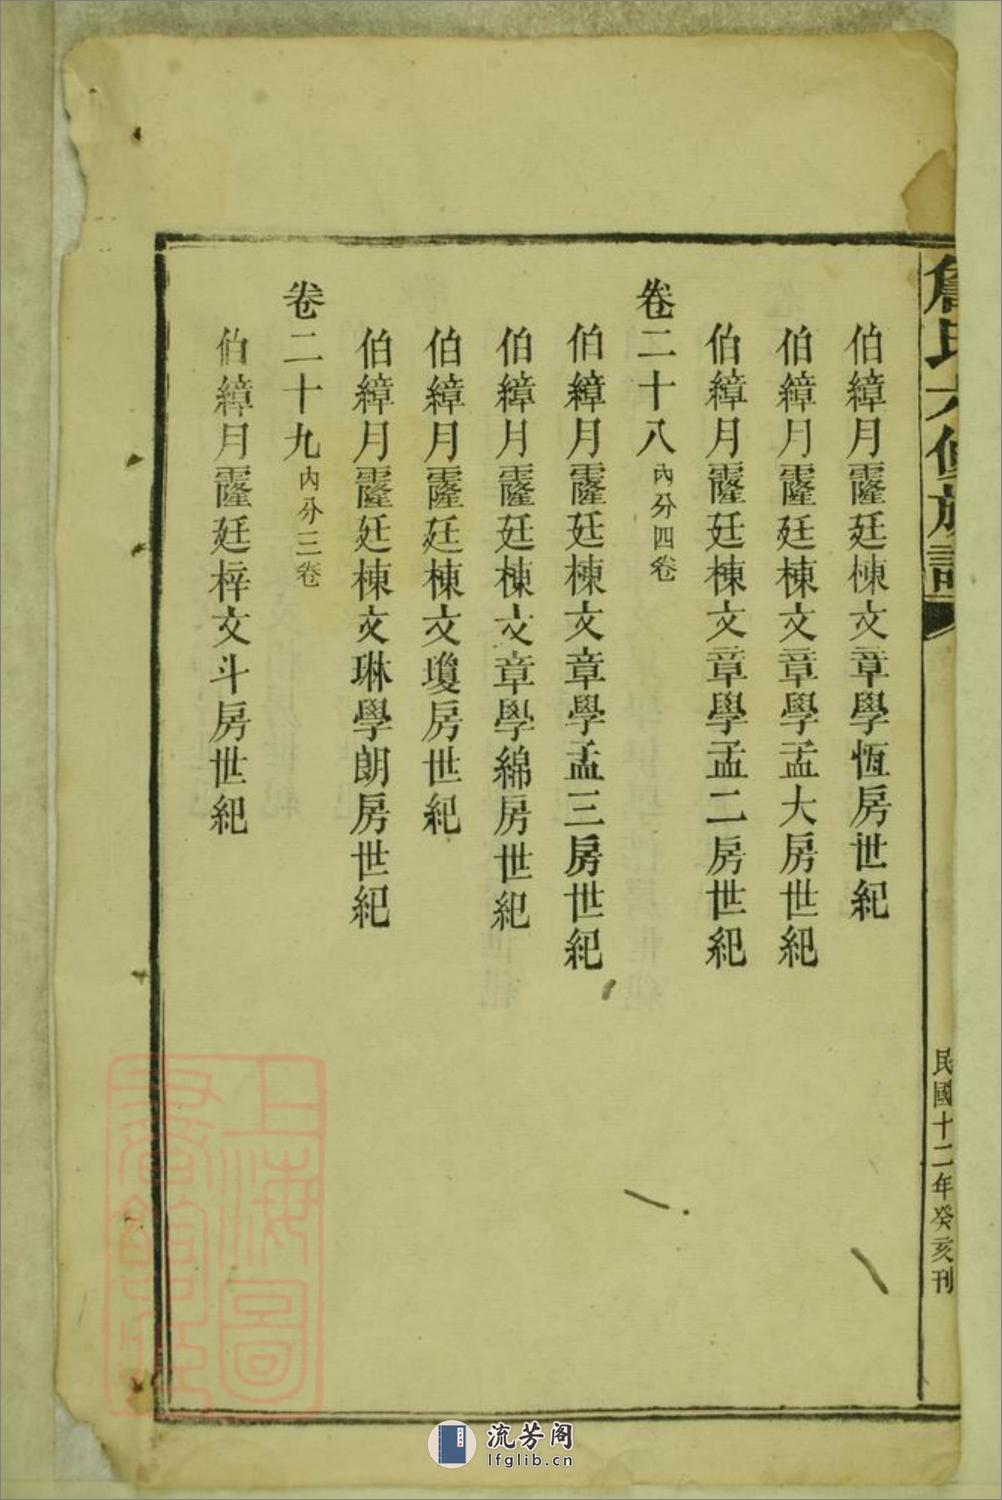 詹氏六修族譜
民國十二年癸亥刊
伯䋫月霳廷棟文章學恆房世紀
伯䋫月霳廷棟文章學孟大房世紀
伯䋫月霳廷棟文章學孟二房世紀
卷二十八內分四卷
伯䋫月霳廷棟文章學孟三房世紀
伯䋫月霳廷棟文章學綿房世紀
伯䋫月霳廷棟文瓊房世紀
伯䋫月霳廷棟文琳學朗房世紀
卷二十九內分三卷
伯䋫月霳廷梓文斗房世紀
上海圖
書館藏
流芳阁
lfglib.cn